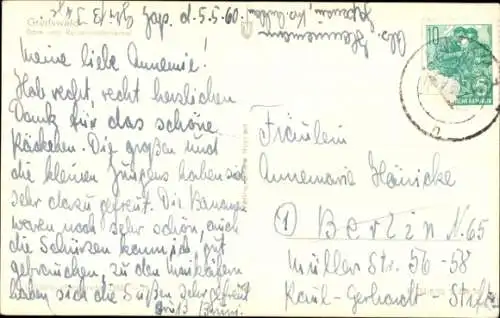 Greifswald
d. 5.5.60.
Meine liebe Annemie!
Hab recht, recht herzlichen
Dank für das schöne
Päckchen. Die großen und
die kleinen Jungens haben sich
sehr dazu gefreut. Die Bananen
waren noch sehr schön, auch
die Schürzen kann ich gut
gebrauchen, zu den Maikäfern
haben sich die Süßen sehr gefreut
Gruß
Abs.
Fräulein
Annemarie Hänicke
1 Berlin N. 65
Müller Str. 56-58
Paul-Gerhardt-Stift
10